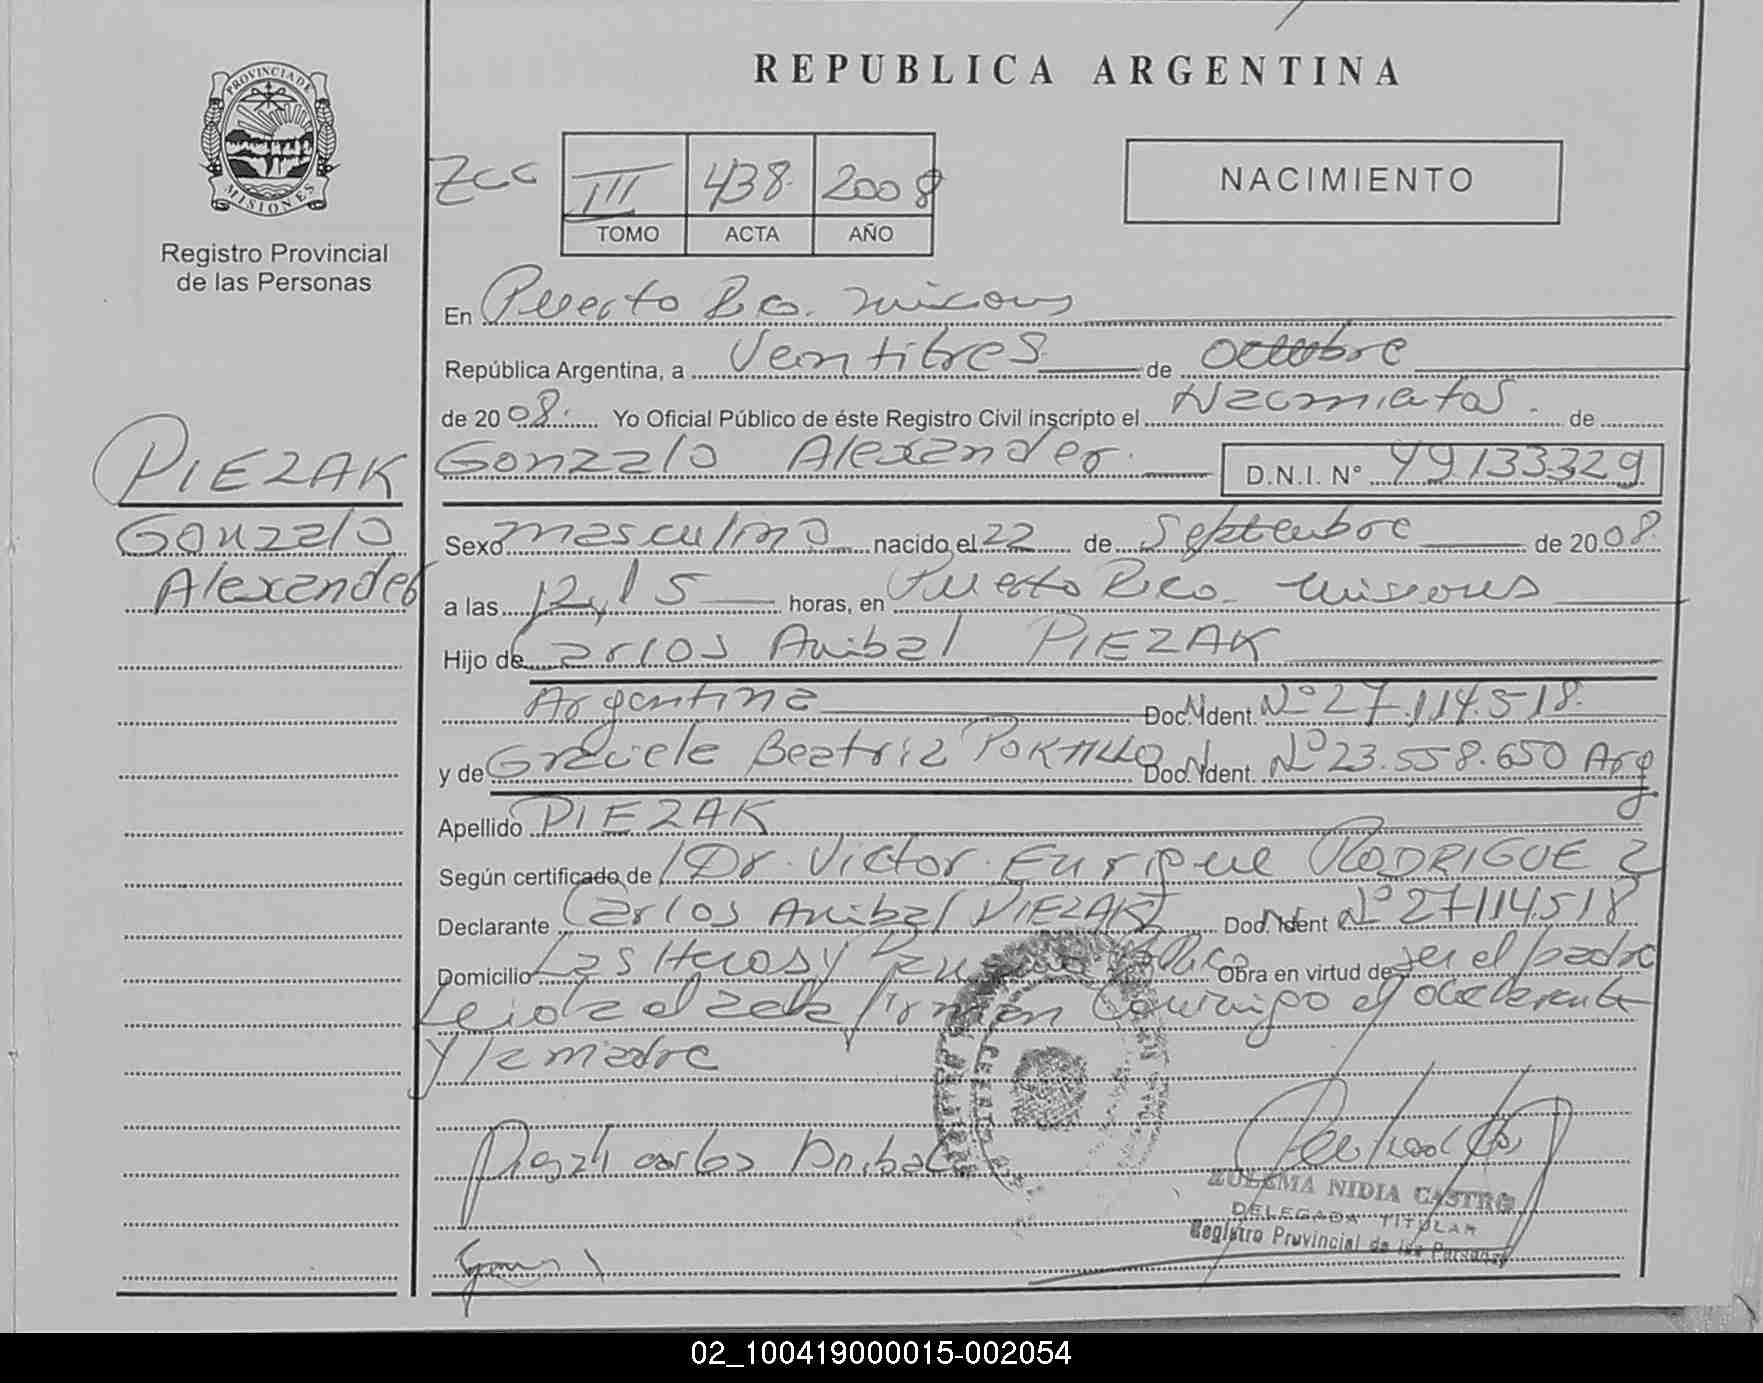 REPUBLICA ARGENTINA
PROVINCIA DE
MISIONES
Registro Provincial
de las Personas
III 438 2008
TOMO ACTA AÑO
NACIMIENTO
En Puerto Rico. Misiones
República Argentina, a Ventitres de Octubre
de 2008. Yo Oficial Público de éste Registro Civil inscripto el Nacimiento de
Gonzalo Alexander. D.N.I. N° 49133329
PIEZAK
Gonzalo
Alexander
Sexo masculino nacido el 22 de Septiembre de 2008.
a las 12,15 horas, en Puerto Rico. Misiones
Hijo de Carlos Anibal PIEZAK
Argentina Doc. Ident. N° 27.114.518.
y de Graciela Beatriz PORTILLO Doc. Ident. N° 23.558.650 Arg
Apellido PIEZAK
Según certificado de Dr. Victor Enrique RODRIGUEZ
Declarante Carlos Anibal PIEZAK Doc. Ident N° 27114518
Domicilio Las Heras y Obra en virtud de ser el padre
Leida el acta firman conmigo el declarante
y la madre
Piezak carlos Anibal
ZULEMA NIDIA CASTRO
DELEGADA TITULAR
Registro Provincial de las Personas
02_100419000015-002054